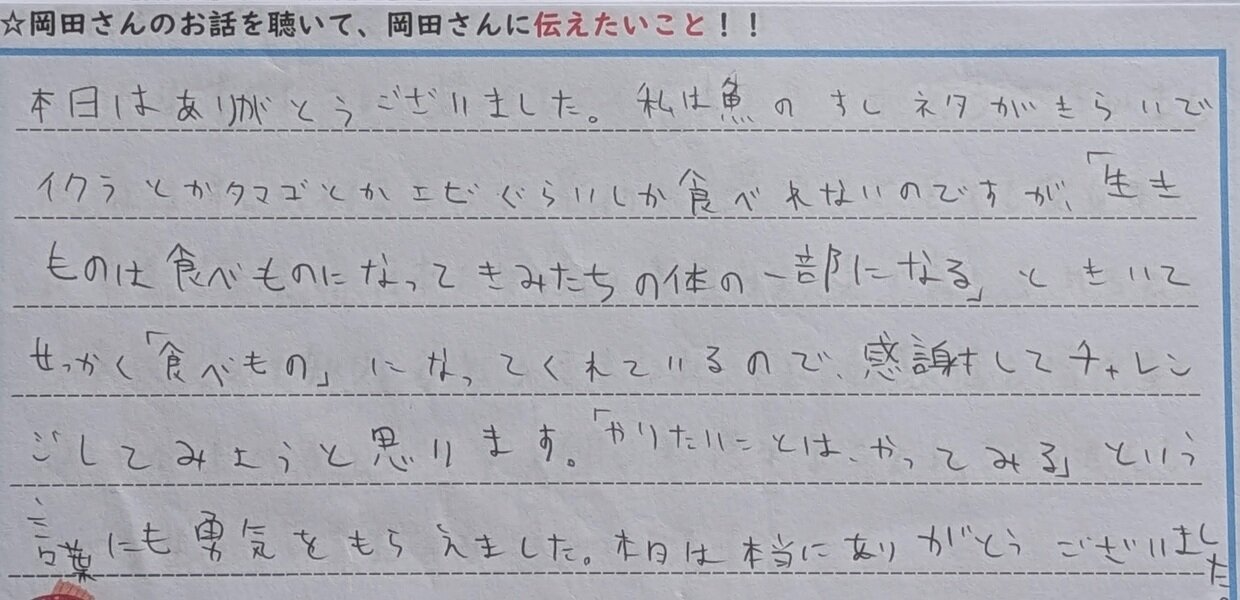 ☆岡田さんのお話を聴いて、岡田さんに伝えたいこと！！
本日はありがとうございました。私は魚のすしネタがきらいで
イクラとかタマゴとかエビぐらいしか食べれないのですが、「生き
ものは食べものになってきみたちの体の一部になる」ときいて
せっかく「食べもの」になってくれているので、感謝してチャレン
ジしてみようと思います。「やりたいことは、やってみる」という
言葉にも勇気をもらえました。本日は本当にありがとうございました。